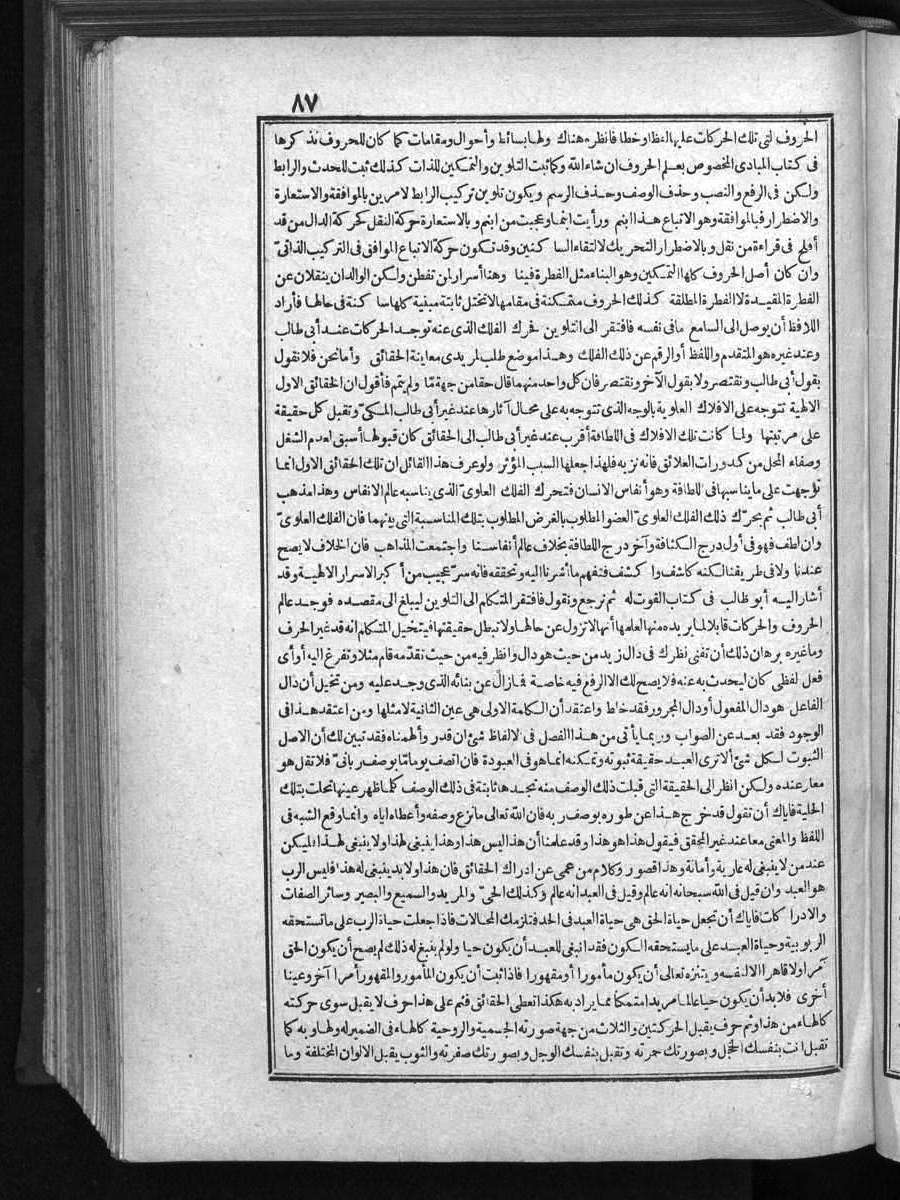 ٨٧
الحروف لتى تلك الحركات عليها لفظا وخطا فانظره هناك ولها بسائط وأحوال ومقامات كما كان للحروف نذكرها
فى كتاب المبادى المخصوص بعلم الحروف ان شاء الله وكما ثبت التلوين والتمكين للذات كذلك ثبت للحدث والرابط
ولكن فى الرفع والنصب وحذف الوصف وحذف الرسم ويكون تلوين تركيب الرابط لامرين بالموافقة والاستعارة
والاضطرار فبالموافقة وهو الاتباع هذا ابنم ورأيت ابنما وعجبت من ابنم وبالاستعارة حركة النقل كحركة الدال من قد
أفلح فى قراءة من نقل وبالاضطرار التحريك لالتقاء الساكنين وقد تكون حركة الاتباع الموافق فى التركيب الذاتى
وان كان أصل الحروف كلها التمكين وهو البناء مثل الفطرة فينا وهنا أسرار لمن تفطن ولكن الوالدان ينقلان عن
الفطرة المقيدة لا الفطرة المطلقة كذلك الحروف متمكنة فى مقامها لا تختل ثابتة مبنية كلها ساكنة فى حالها فأراد
اللافظ أن يوصل الى السامع مافى نفسه فافتقر الى التلوين فحرك الفلك الذى عنه توجد الحركات عند أبى طالب
وعند غيره هو المتقدم واللفظ أو الرقم عن ذلك الفلك وهذا موضع طلب لمريدى معاينة الحقائق وأما نحن فلا نقول
بقول أبى طالب ونقتصر ولا بقول الآخر ونقتصر فان كل واحد منهما قال حقا من جهة مّا ولم يتمم فأقول ان الحقائق الاول
الالهية تتوجه على الافلاك العلوية بالوجه الذى تتوجه به على محال آثارها عند غير أبى طالب المكىّ وتقبل كل حقيقة
على مرتبتها ولما كانت تلك الافلاك فى اللطافة أقرب عند غير أبى طالب الى الحقائق كان قبولها أسبق لعدم الشغل
وصفاء المحل من كدورات العلائق فانه نزيه فلهذا جعلها السبب المؤثر ولو عرف هذا القائل ان تلك الحقائق الاول انما
توجهت على ما يناسبها فى اللطافة وهو أنفاس الانسان فتحرك الفلك العلوىّ الذى يناسبه عالم الانفاس وهذا مذهب
أبى طالب ثم يحرّك ذلك الفلك العلوىّ العضو المطلوب بالغرض المطلوب بتلك المناسبة التى بينهما فان الفلك العلوىّ
وان لطف فهو فى أول درج الكثافة وآخر درج اللطافة بخلاف عالم أنفاسنا واجتمعت المذاهب فان الخلاف لا يصح
عندنا ولا فى طريقنا لكنه كاشف وا كشف فتفهم ما أشرنا اليه وتحققه فانه سرّ عجيب من أكبر الاسرار الالهية وقد
أشار اليه أبو طالب فى كتاب القوت له ثم نرجع ونقول فافتقر المتكلم الى التلوين ليبلغ الى مقصده فوجد عالم
الحروف والحركات قابلا لما يريده منها لعلمها أنها لا تزول عن حالها ولا تبطل حقيقتها فيتخيل المتكلم انه قد غير الحرف
وما غيره برهان ذلك أن تفنى نظرك فى دال زيد من حيث هو دال وانظر فيه من حيث تقدّمه قام مثلا وتفرغ اليه أو أى
فعل لفظى كان ليحدث به عنه فلا يصح لك الا الرفع فيه خاصة فما زال عن بنائه الذى وجد عليه ومن تخيل أن دال
الفاعل هو دال المفعول أو دال المجرور فقد خلط واعتقد أن الكلمة الاولى هى عين الثانية لا مثلها ومن اعتقد هذا فى
الوجود فقد بعد عن الصواب وربما يأتى من هذا الفصل فى الالفاظ شئ ان قدر وألهمناه فقد تبين لك أن الاصل
الثبوت لكل شئ ألا ترى العبد حقيقة ثبوته وتمكنه انما هو فى العبودة فان اتصف يوما مّا بوصف ربانىّ فلا تقل هو
معار عنده ولكن انظر الى الحقيقة التى قبلت ذلك الوصف منه تجدها ثابتة فى ذلك الوصف كلما ظهر عينها تحلت بتلك
الحلية فاياك أن تقول قد خرج هذا عن طوره بوصف ربه فان الله تعالى ما نزع وصفه وأعطاه اياه وانما وقع الشبه فى
اللفظ والمعنى معا عند غير المحقق فيقول هذا هو هذا وقد علمنا أن هذا ليس هذا وهذا ينبغى لهذا ولا ينبغى لهذا فليكن
عند من لا ينبغى له عارية وأمانة وهذا قصور وكلام من عمى عن ادراك الحقائق فان هذا ولا بد ينبغى له هذا فليس الرب
هو العبد وان قيل فى الله سبحانه انه عالم وقيل فى العبد انه عالم وكذلك الحىّ والمريد والسميع والبصير وسائر الصفات
والادراكات فاياك أن تجعل حياة الحق هى حياة العبد فى الحد فتلزمك المحالات فاذا جعلت حياة الرب على ما تستحقه
الربوبية وحياة العبد على ما يستحقه الكون فقد انبغى للعبد أن يكون حيا ولو لم ينبغ له ذلك لم يصح أن يكون الحق
آمرا ولا قاهرا الا لنفسه ويتنزه تعالى أن يكون مأمورا أو مقهورا فاذا ثبت أن يكون المأمور والمقهور أمرا آخر وعينا
أخرى فلا بد أن يكون حيا عالما مريدا متمكنا مما يراد به هكذا تعطى الحقائق فثم على هذا حرف لا يقبل سوى حركته
كالهاء من هذا وثم حرف يقبل الحركتين والثلاث من جهة صورته الجسمية والروحية كالهاء فى الضمير له ولها وبه كما
تقبل انت بنفسك الخجل وبصورتك حمرته وتقبل بنفسك الوجل وبصورتك صفرته والثوب يقبل الالوان المختلفة وما